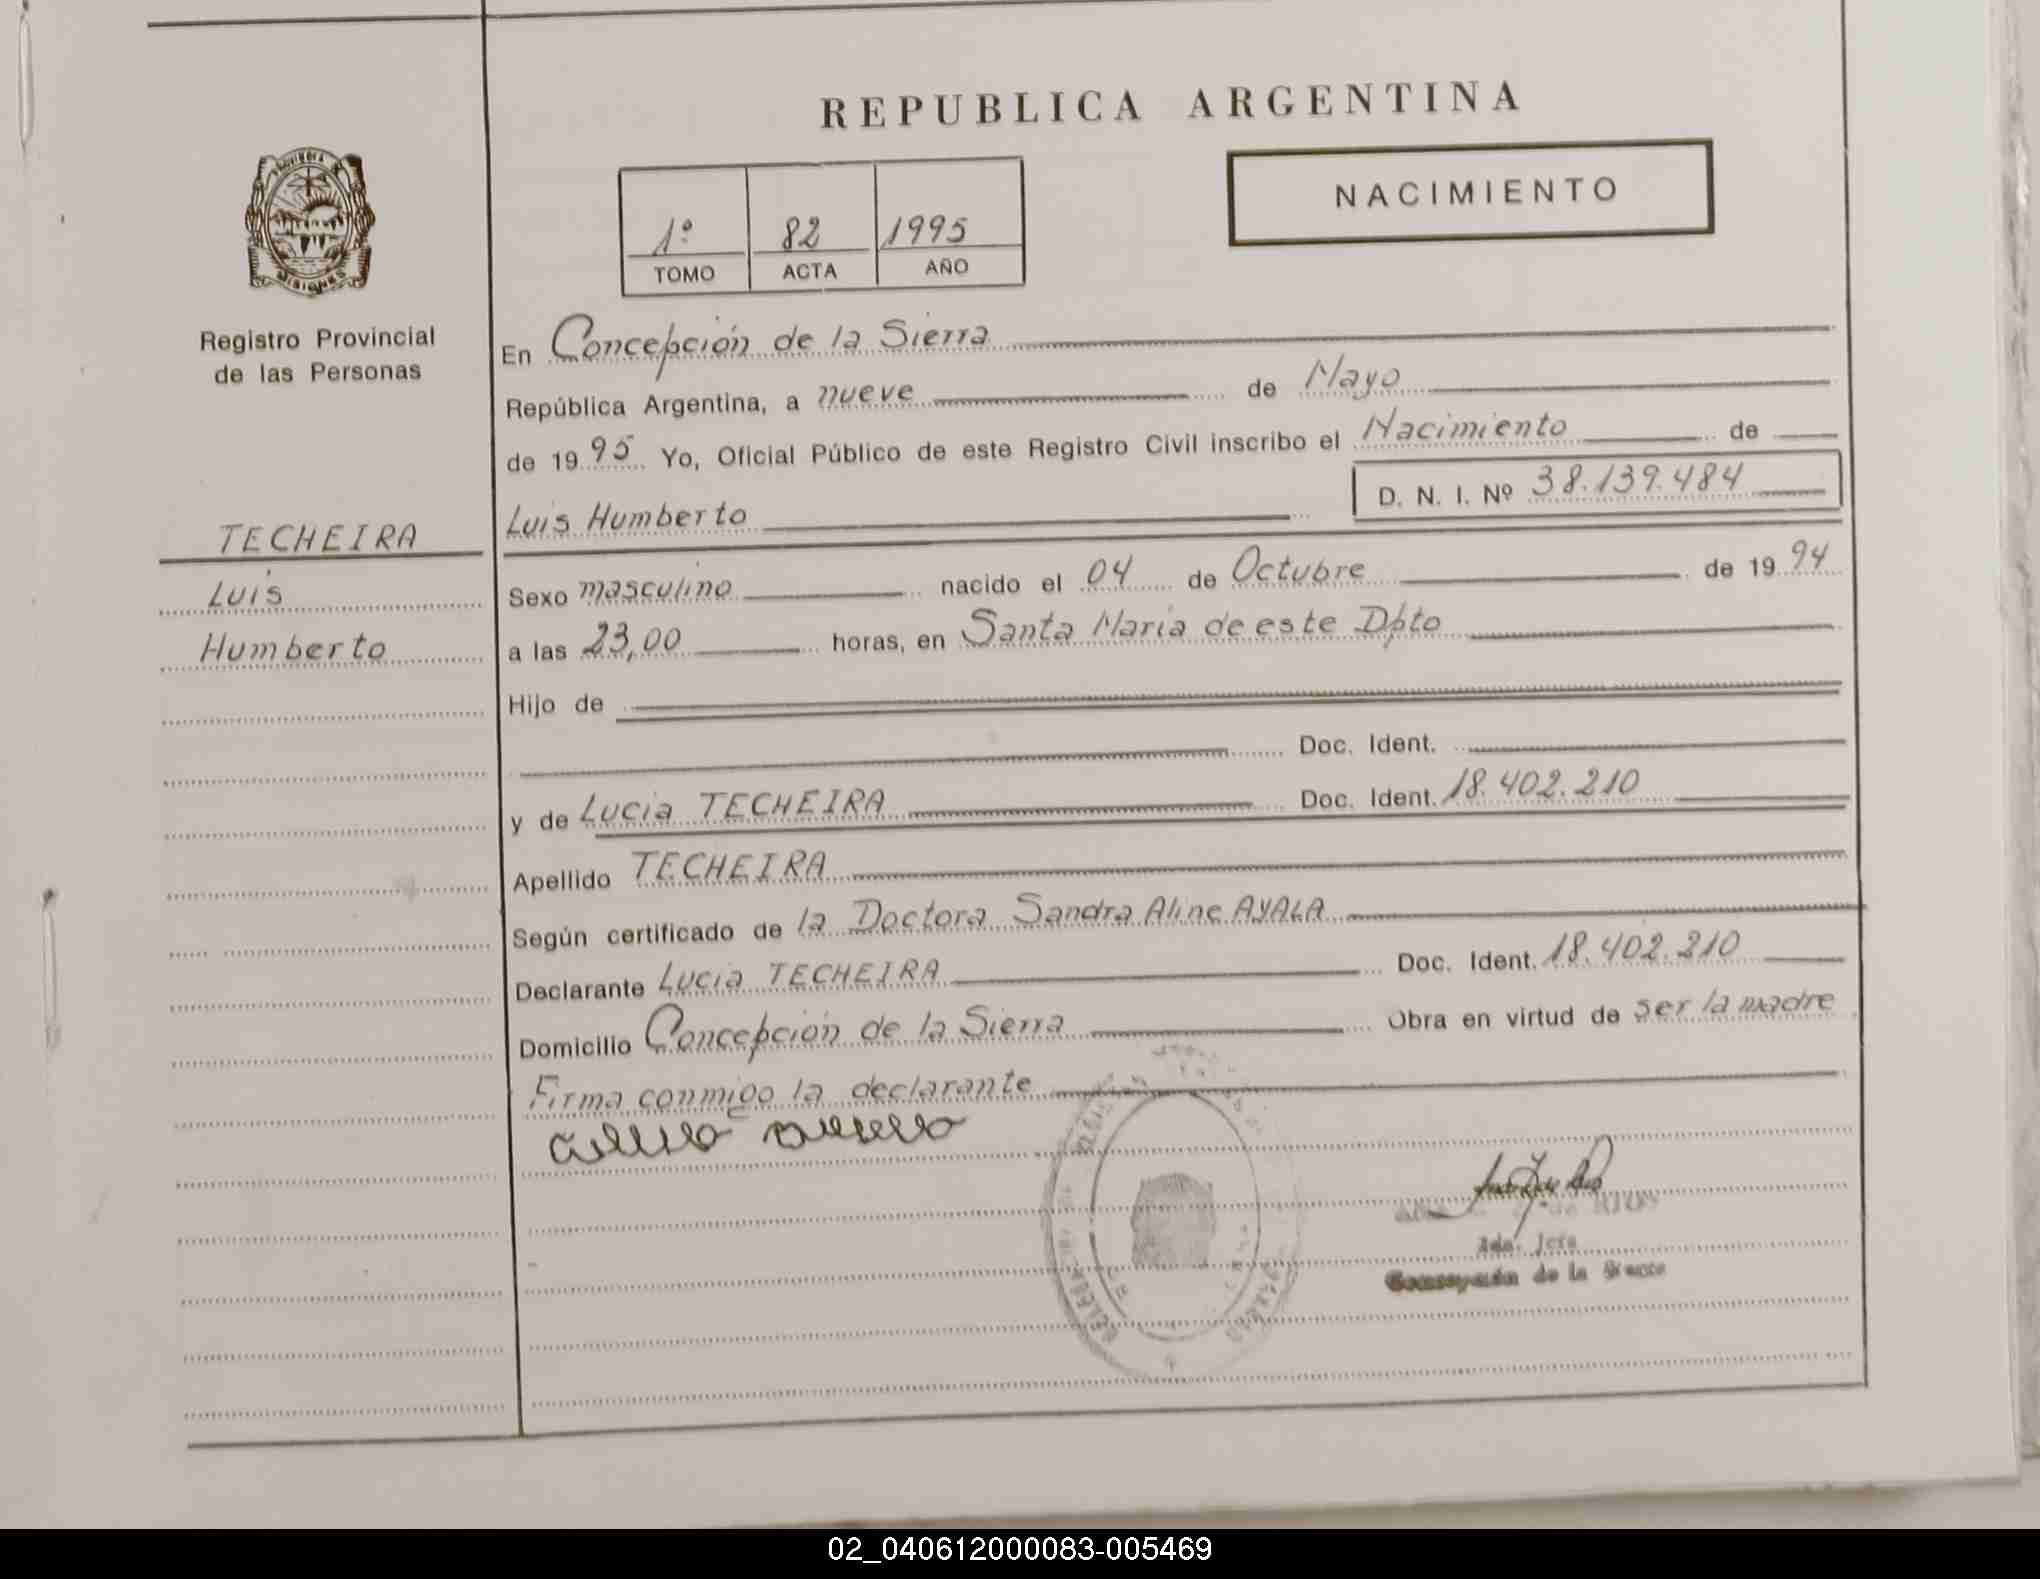 REPUBLICA ARGENTINA
NACIMIENTO
1º 82 1995
TOMO ACTA AÑO
PROVINCIA DE
MISIONES
Registro Provincial
de las Personas
TECHEIRA
Luis
Humberto
En Concepción de la Sierra
República Argentina, a nueve de Mayo
de 1995 Yo, Oficial Público de este Registro Civil inscribo el Nacimiento de
Luis Humberto D. N. I. Nº 38.139.484
Sexo masculino nacido el 04 de Octubre de 1994
a las 23,00 horas, en Santa Maria de este Dpto
Hijo de
Doc. Ident.
y de Lucia TECHEIRA Doc. Ident. 18.402.210
Apellido TECHEIRA
Según certificado de la Doctora Sandra Aline AYALA
Declarante Lucia TECHEIRA Doc. Ident. 18.402.210
Domicilio Concepción de la Sierra Obra en virtud de ser la madre
Firma conmigo la declarante
de RIOS
Jefa
Concepción de la Sierra
02_040612000083-005469